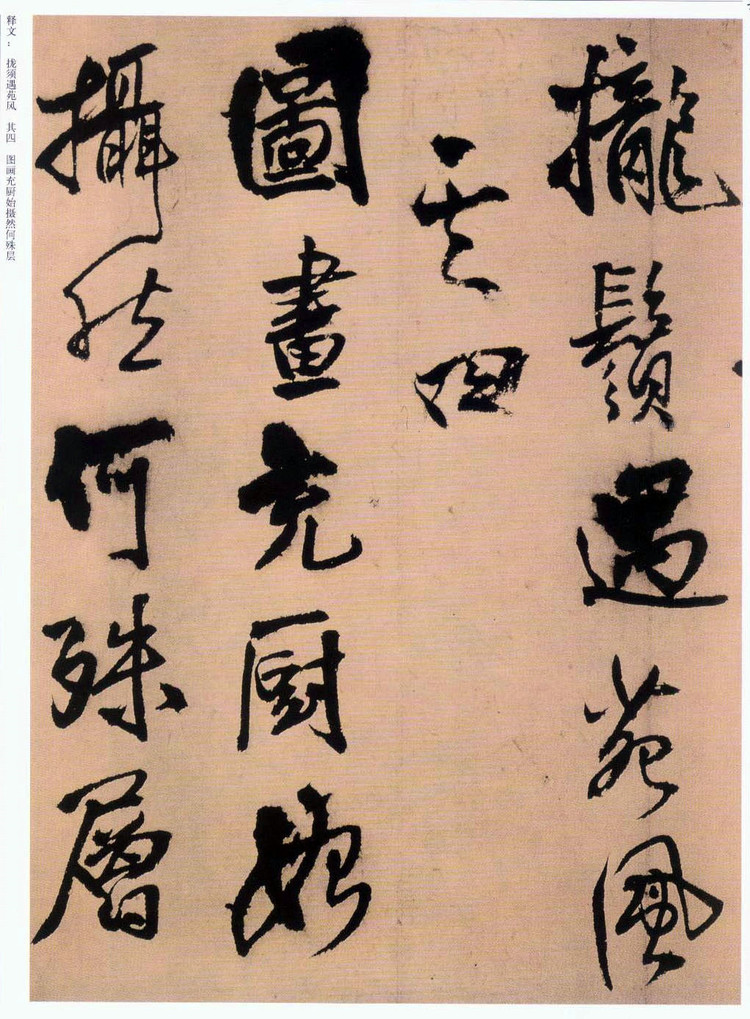 攏鬚遇苑風
其四
圖畫充厨始
攝然何殊層
释文： 拢须遇苑风 其四 图画充厨始摄然何殊层